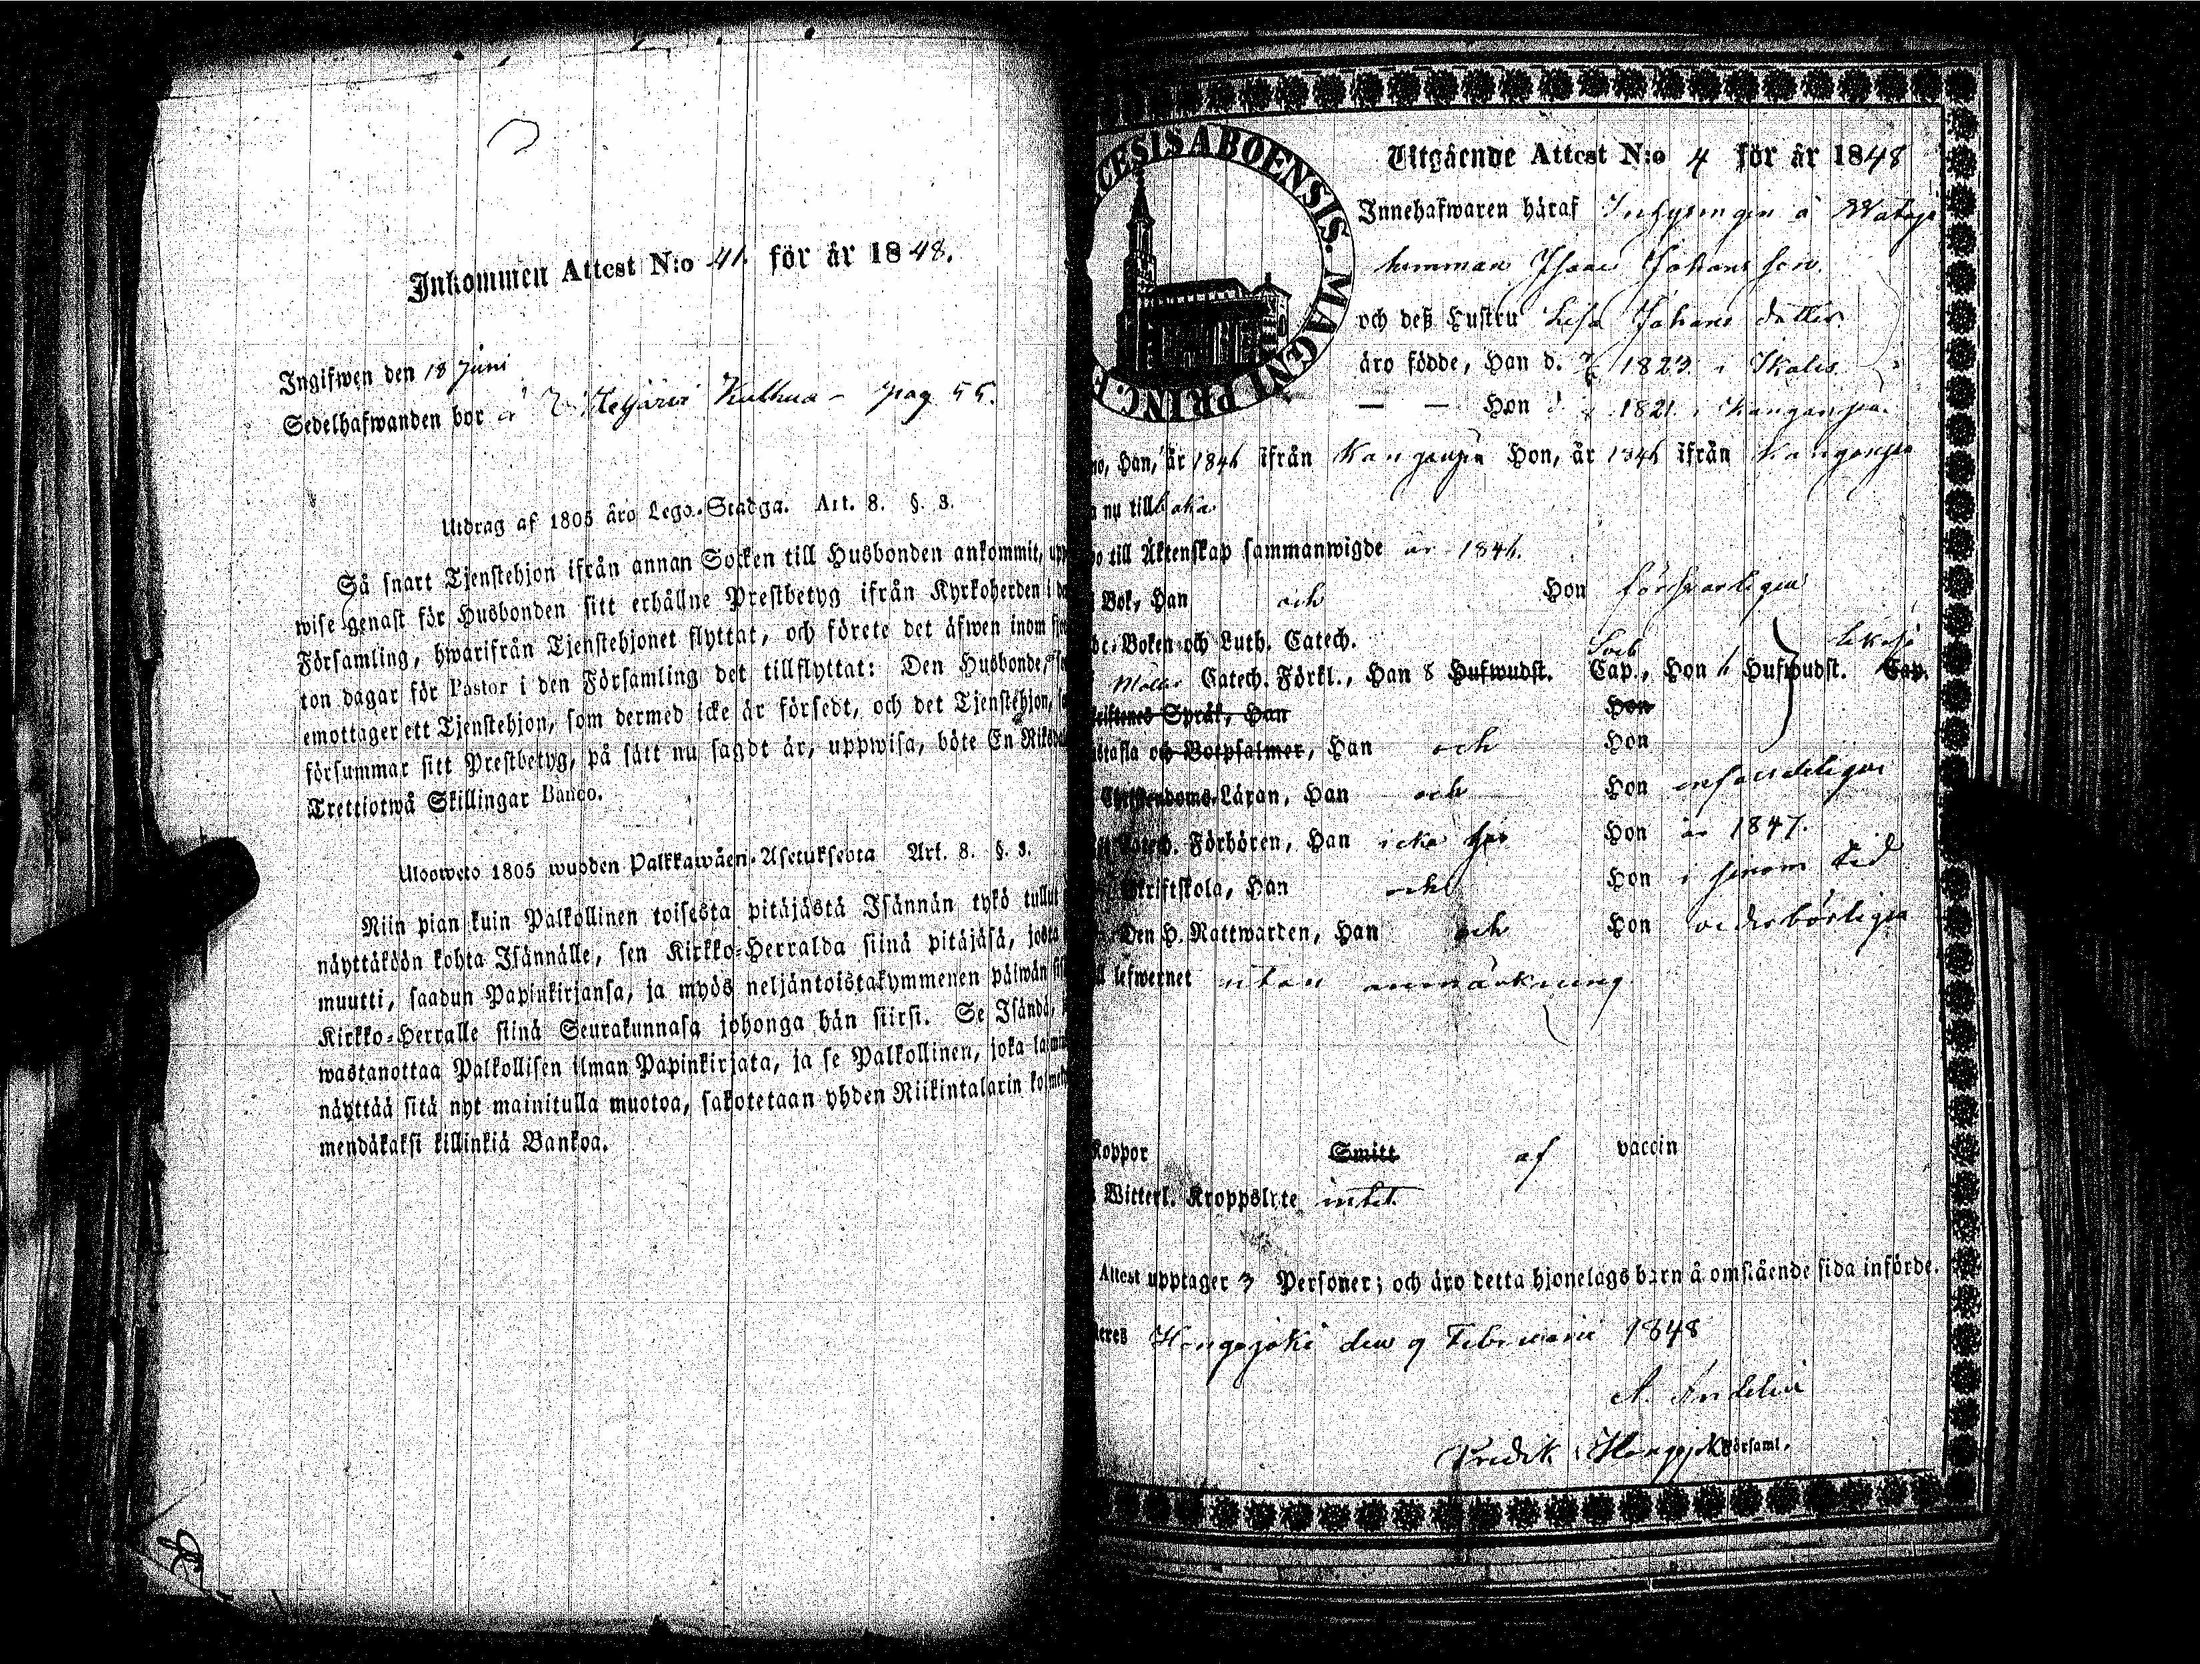 Inkommen Attest N:o 41. för år 1848.
Ingifwen den 18 Juni
Sedelhafwanden bor å Kulhua - pag 55.
Utdrag af 1805 års Lego-Stadga. Art. 8. §. 3.
Så snart Tjenstehjon ifrån annan Socken till Husbonden ankommit, upp
wise genast för Husbonden sitt erhållne Prestbetyg ifrån Kyrkoherden i
Församling, hwarifrån Tjenstehjonet flyttat, och förete det äfwen inom
ton dagar för Pastor i den Församling det tillflyttat: Den Husbonde,
emottager ett Tjenstehjon, som dermed icke är försedt, och det Tjenstehjon,
försummar sitt Prestbetyg, på sätt nu sagdt är, uppwisa, böte En Riksd
Trettiotwå Skillingar Banco.
Ulosweto 1805 wuoden Palkkawäen-Asetuksesta Art. 8. §. 3.
Niin pian kuin Palkollinen toisesta pitäjästä Isännän tykö tullut
näyttäköön kohta Isännälle, sen Kirkko-Herralda siinä pitäjäsä, josta
muutti, saadun Papinkirjansa, ja myös neljäntoistakymmenen päiwän
Kirkko-Herralle siinä Seurakunnasa johonga hän siirsi. Se Isändä,
wastanottaa Palkollisen ilman Papinkirjata, ja se Palkollinen, joka
näyttää sitä nyt mainitulla muotoa, sakotetaan yhden Riikintalarin
mendäkaksi killinkiä Bankoa.
CESIS ABOENSIS. MAGNI PRINC. F
Utgående Attest N:o 4 för år 1848
Innehafwaren häraf Inhysingen å
hemman Isaac Johansson
och deß Hustru Lisa Johans dotter
äro födde, Han d. 1823 i Ikalis
— — Hon d 1821 i Kanganpä.
Han, år 1846 ifrån Kanganpä Hon, år 1846 ifrån Kanganpä
nu tillbaka
till Äktenskap sammanwigde år 1846.
Bok, Han och Hon förswarligen
Boken och Luth. Catech.
Catech. Förkl., Han 8 Hufwudst. Cap., Hon Hufwudst. Cap.
Språk, Han Hon
tafla och Botpsalmer, Han och Hon
Christendoms-Läran, Han och Hon
Catech. Förhören, Han icke här Hon år 1847.
Skriftskola, Han och Hon i sinom tid
Den H. Nattwarden, Han och Hon wederbörligen
lefwernet utan anmärkning
Koppor Smitt af vaccin
Witterl. Kroppslyte intet
Attest upptager 3 Personer; och äro detta hjonelags barn å omstående sida införde.
Hongojoki den 9 Februarii 1848
Församl.